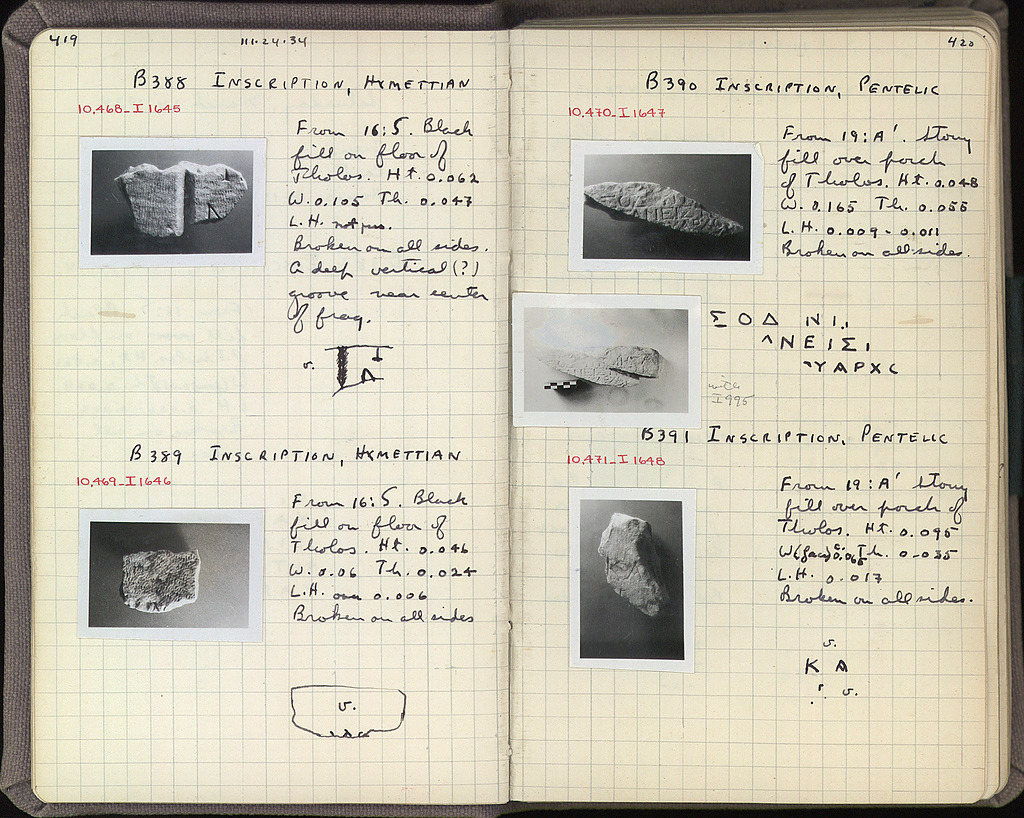 419
111-24-34
B388 INSCRIPTION, HYMETTIAN
10,468_I 1645
From 16:5. Black
fill on floor of
Tholos. Ht. 0.062
W. 0.105 Th. 0.047
L.H. not pres.
Broken on all sides.
A deep vertical (?)
groove near center
of frag.
v.
B389 INSCRIPTION, HYMETTIAN
10,469_I 1646
From 16:5. Black
fill on floor of
Tholos. Ht. 0.046
W. 0.06 Th. 0.024
L.H. over 0.006
Broken on all sides
v.
420
B390 INSCRIPTION, PENTELIC
10,470_I 1647
From 19:A'. Stony
fill over porch
of Tholos. Ht. 0.048
W. 0.165 Th. 0.055
L.H. 0.009 - 0.011
Broken on all sides.
ΣΟΔ ΝΙ
ΝΕΙΣΙ
ΥΑΡΧ
with
I 995
B391 INSCRIPTION, PENTELIC
10,471_I 1648
From 19:A' Stony
fill over porch of
Tholos. Ht. 0.095
W (face) 0.065 Th. 0.035
L.H. 0.017
Broken on all sides.
v.
Κ Α
v.